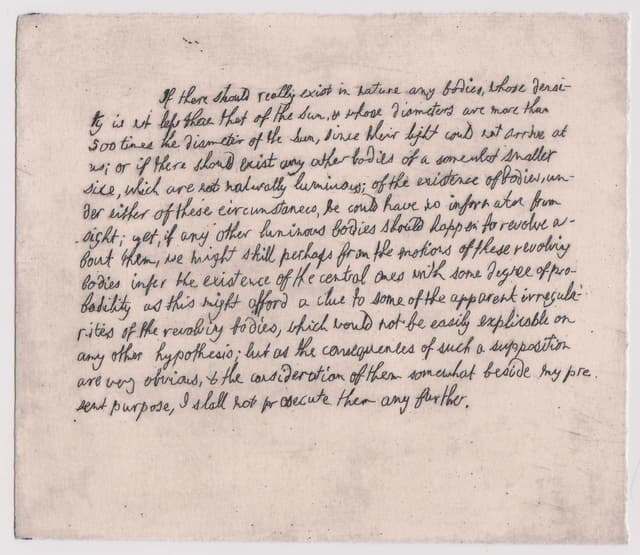 If there should really exist in nature any bodies, whose densi-
ty is not less than that of the sun, & whose diameters are more than
500 times the diameter of the sun, since their light could not arrive at
us; or if there should exist any other bodies of a somewhat smaller
size, which are not naturally luminous; of the existence of bodies, un-
der either of these circumstances, we could have no information from
sight; yet, if any other luminous bodies should happen to revolve a-
bout them, we might still perhaps from the motions of these revolving
bodies infer the existence of the central ones with some degree of pro-
bability as this might afford a clue to some of the apparent irregula-
rites of the revolving bodies, which would not be easily explicable on
any other hypothesis; but as the consequences of such a supposition
are very obvious, & the consideration of them somewhat beside my pre
sent purpose, I shall not prosecute them any further.